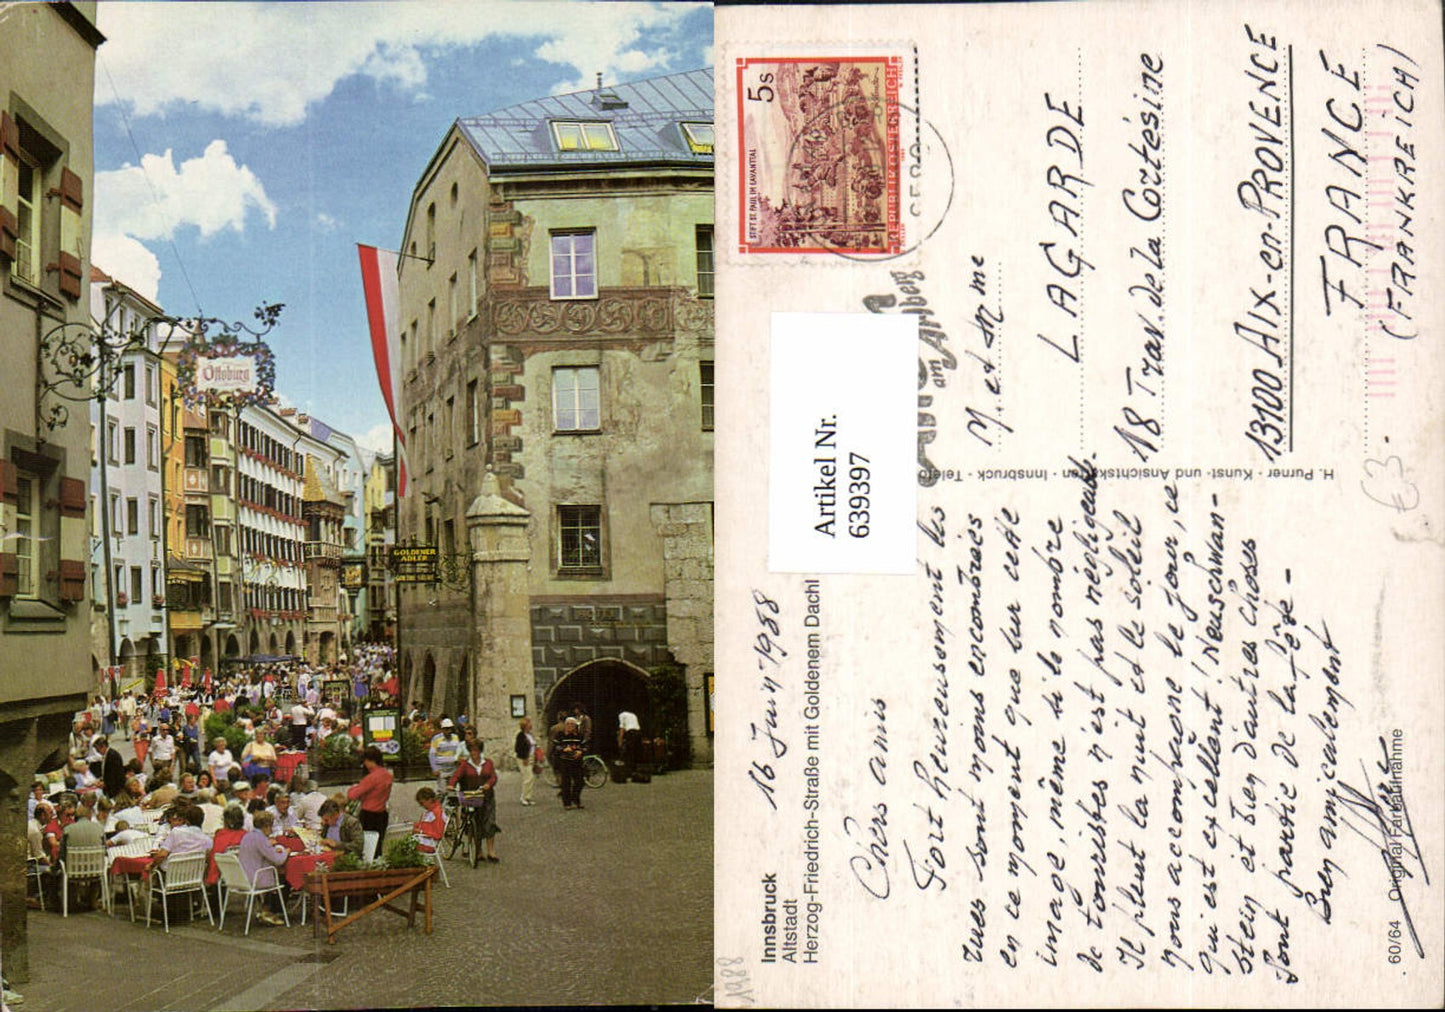 Ottoburg
GOLDENER
ADLER
Innsbruck
Altstadt
Herzog-Friedrich-Straße mit Goldenem Dachl
1988
16 Juin 1988
Chers amis
Fort heureusement les
rues sont moins encombrées
en ce moment que sur cette
image, même si le nombre
de touristes n'est pas négligeable.
Il pleut la nuit et le soleil
nous accompagne le jour, ce
qui est excellent! Neuschwan-
stein et bien d'autres choses
font partie de la fête -
Bien amicalement
60/64 Original Farbaufnahme
H. Purner - Kunst- und Ansichtskarten - Innsbruck - Telefo
Artikel Nr.
639397
5s
STIFT ST. PAUL IM LAVANTTAL
REPUBLIK ÖSTERREICH
am Arlberg
M. et Mme
LAGARDE
18 Trav. de la Cortésine
13100 AIX-en-PROVENCE
FRANCE
(FRANKREICH)
€3.-